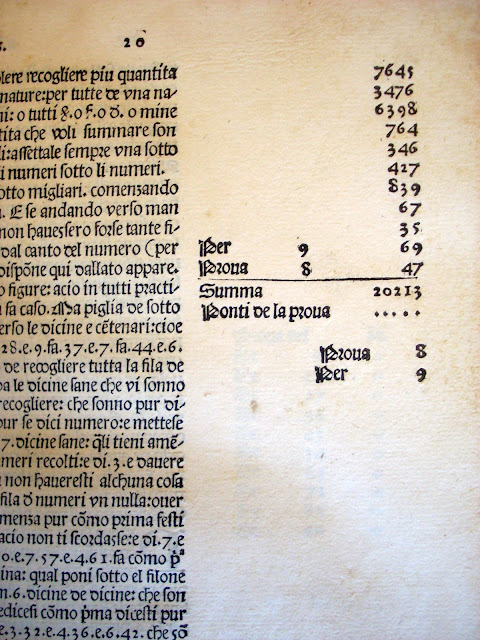 s. 20
lere recogliere piu quantita
nature:per tutte de vna na-
ni: o tutti o ſ.o đ. o mine
tita che voli ſummare ſon
li:aſſettale ſempre vna ſotto
li numeri ſotto li numeri.
otto migliari. comenzando
E ſe andando verſo man
non haueſſero forſe tante fi-
dal canto del numero (per
diſpōne qui dallato appare.
o figure: acio in tutti practi-
fa caſo. Ma piglia de ſotto
verſo le dicine e cētenari:cioe
28.e.9.fa.37.e.7.fa.44.e.6.
de recogliere tutta la fila de
le dicine ſane che vi ſonno
recogliere: che ſonno pur di-
pur ſe dici numero:e metteſe
7.dicine ſane: q̄li tieni amē-
meri recolti:e di.3.e dauere
non hauereſti alchuna coſa
fila đ numeri vn nulla:ouer
menza pur cōmo prima feſti
acio non ti ſcordaſſe:e di.7.e
o.e.7.57.e.4.61.fa cōmo p̄ª
ina: qual poni ſotto el filone
n.6.dicine de dicine: che ſon
ediceſi cōmo p̄ma diceſti pur
e.3.32.e.4.36.e.6.42. che ſō
7645
3476
6398
764
346
427
839
67
35
Per 9 69
Proua 8 47
Summa 20213
Ponti de la proua .....
Proua 8
Per 9